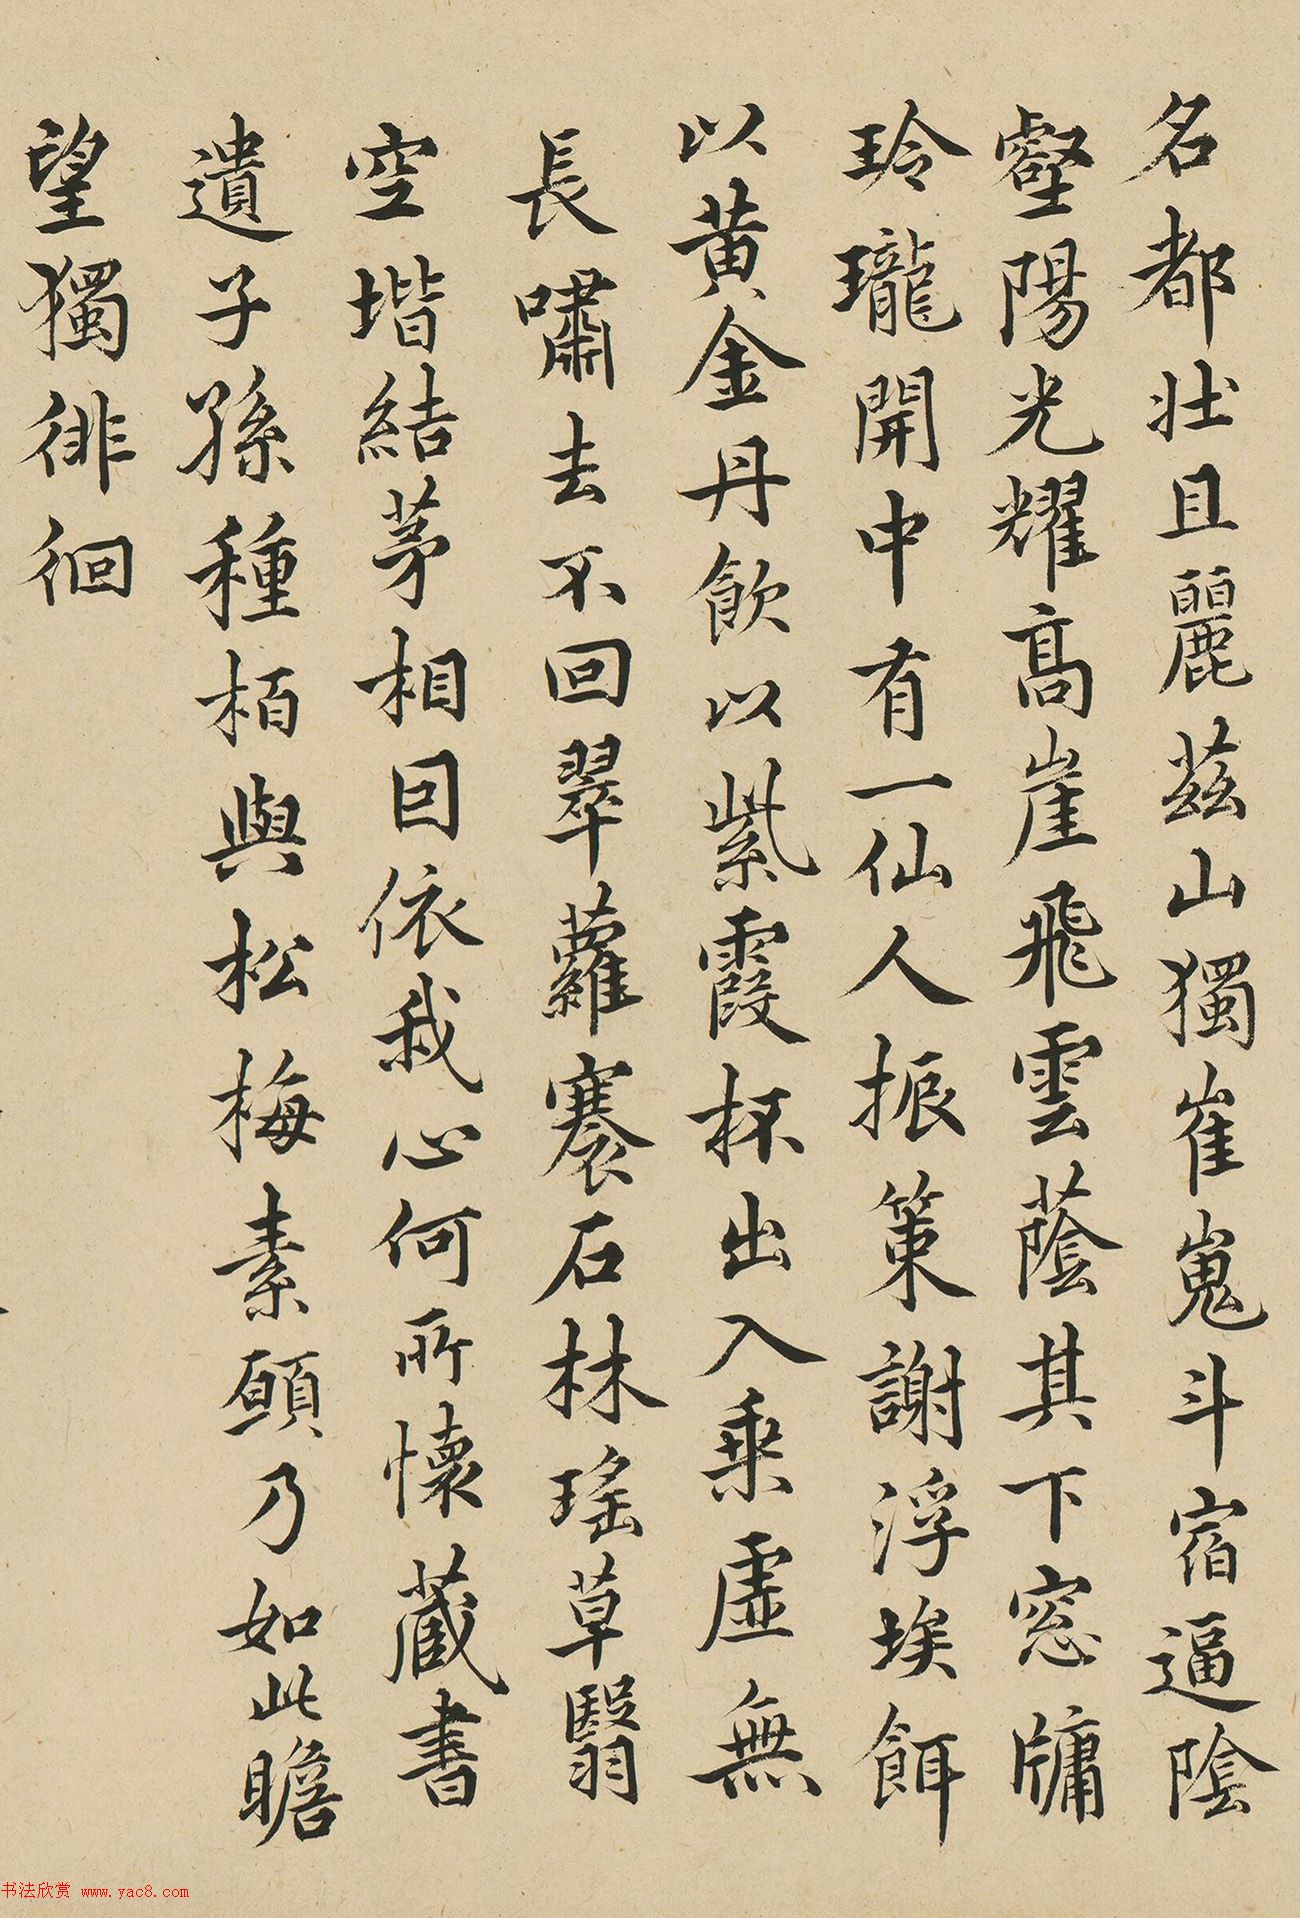 名都壯且麗茲山獨崔嵬斗宿逼陰
壑陽光耀高崖飛雲蔭其下窓牗
玲瓏開中有一仙人振策謝浮埃餌
以黃金丹飲以紫霞杯出入乗虛無
長嘯去不回翠蘿褰石林瑤草翳
空堦結茅相因依我心何所懷蔵書
遺子孫種栢與松梅素願乃如此瞻
望獨徘徊
书法欣赏 www.yac8.com